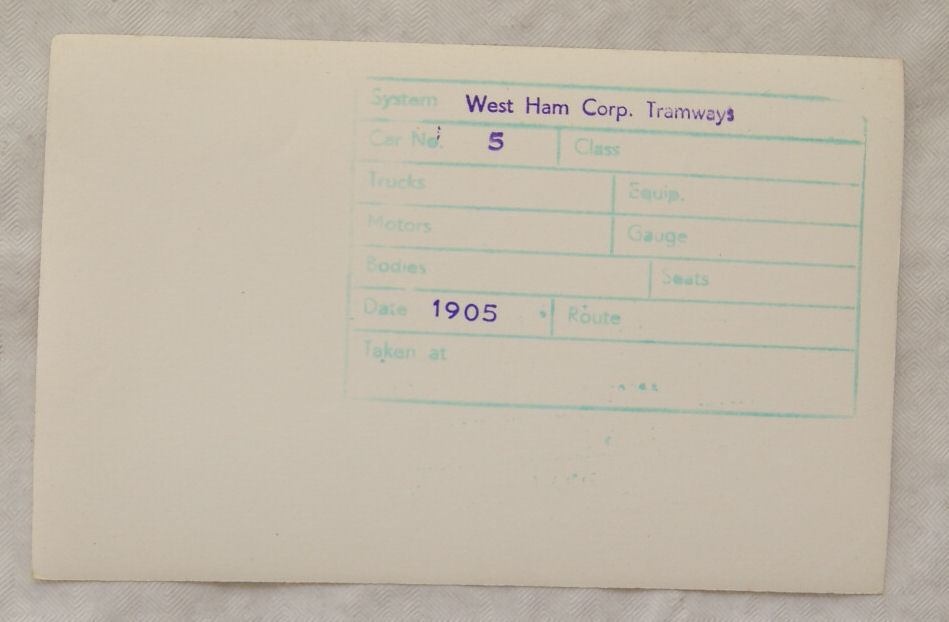 System West Ham Corp. Tramways
Car No. 5 Class
Trucks Equip.
Motors Gauge
Bodies Seats
Date 1905 Route
Taken at